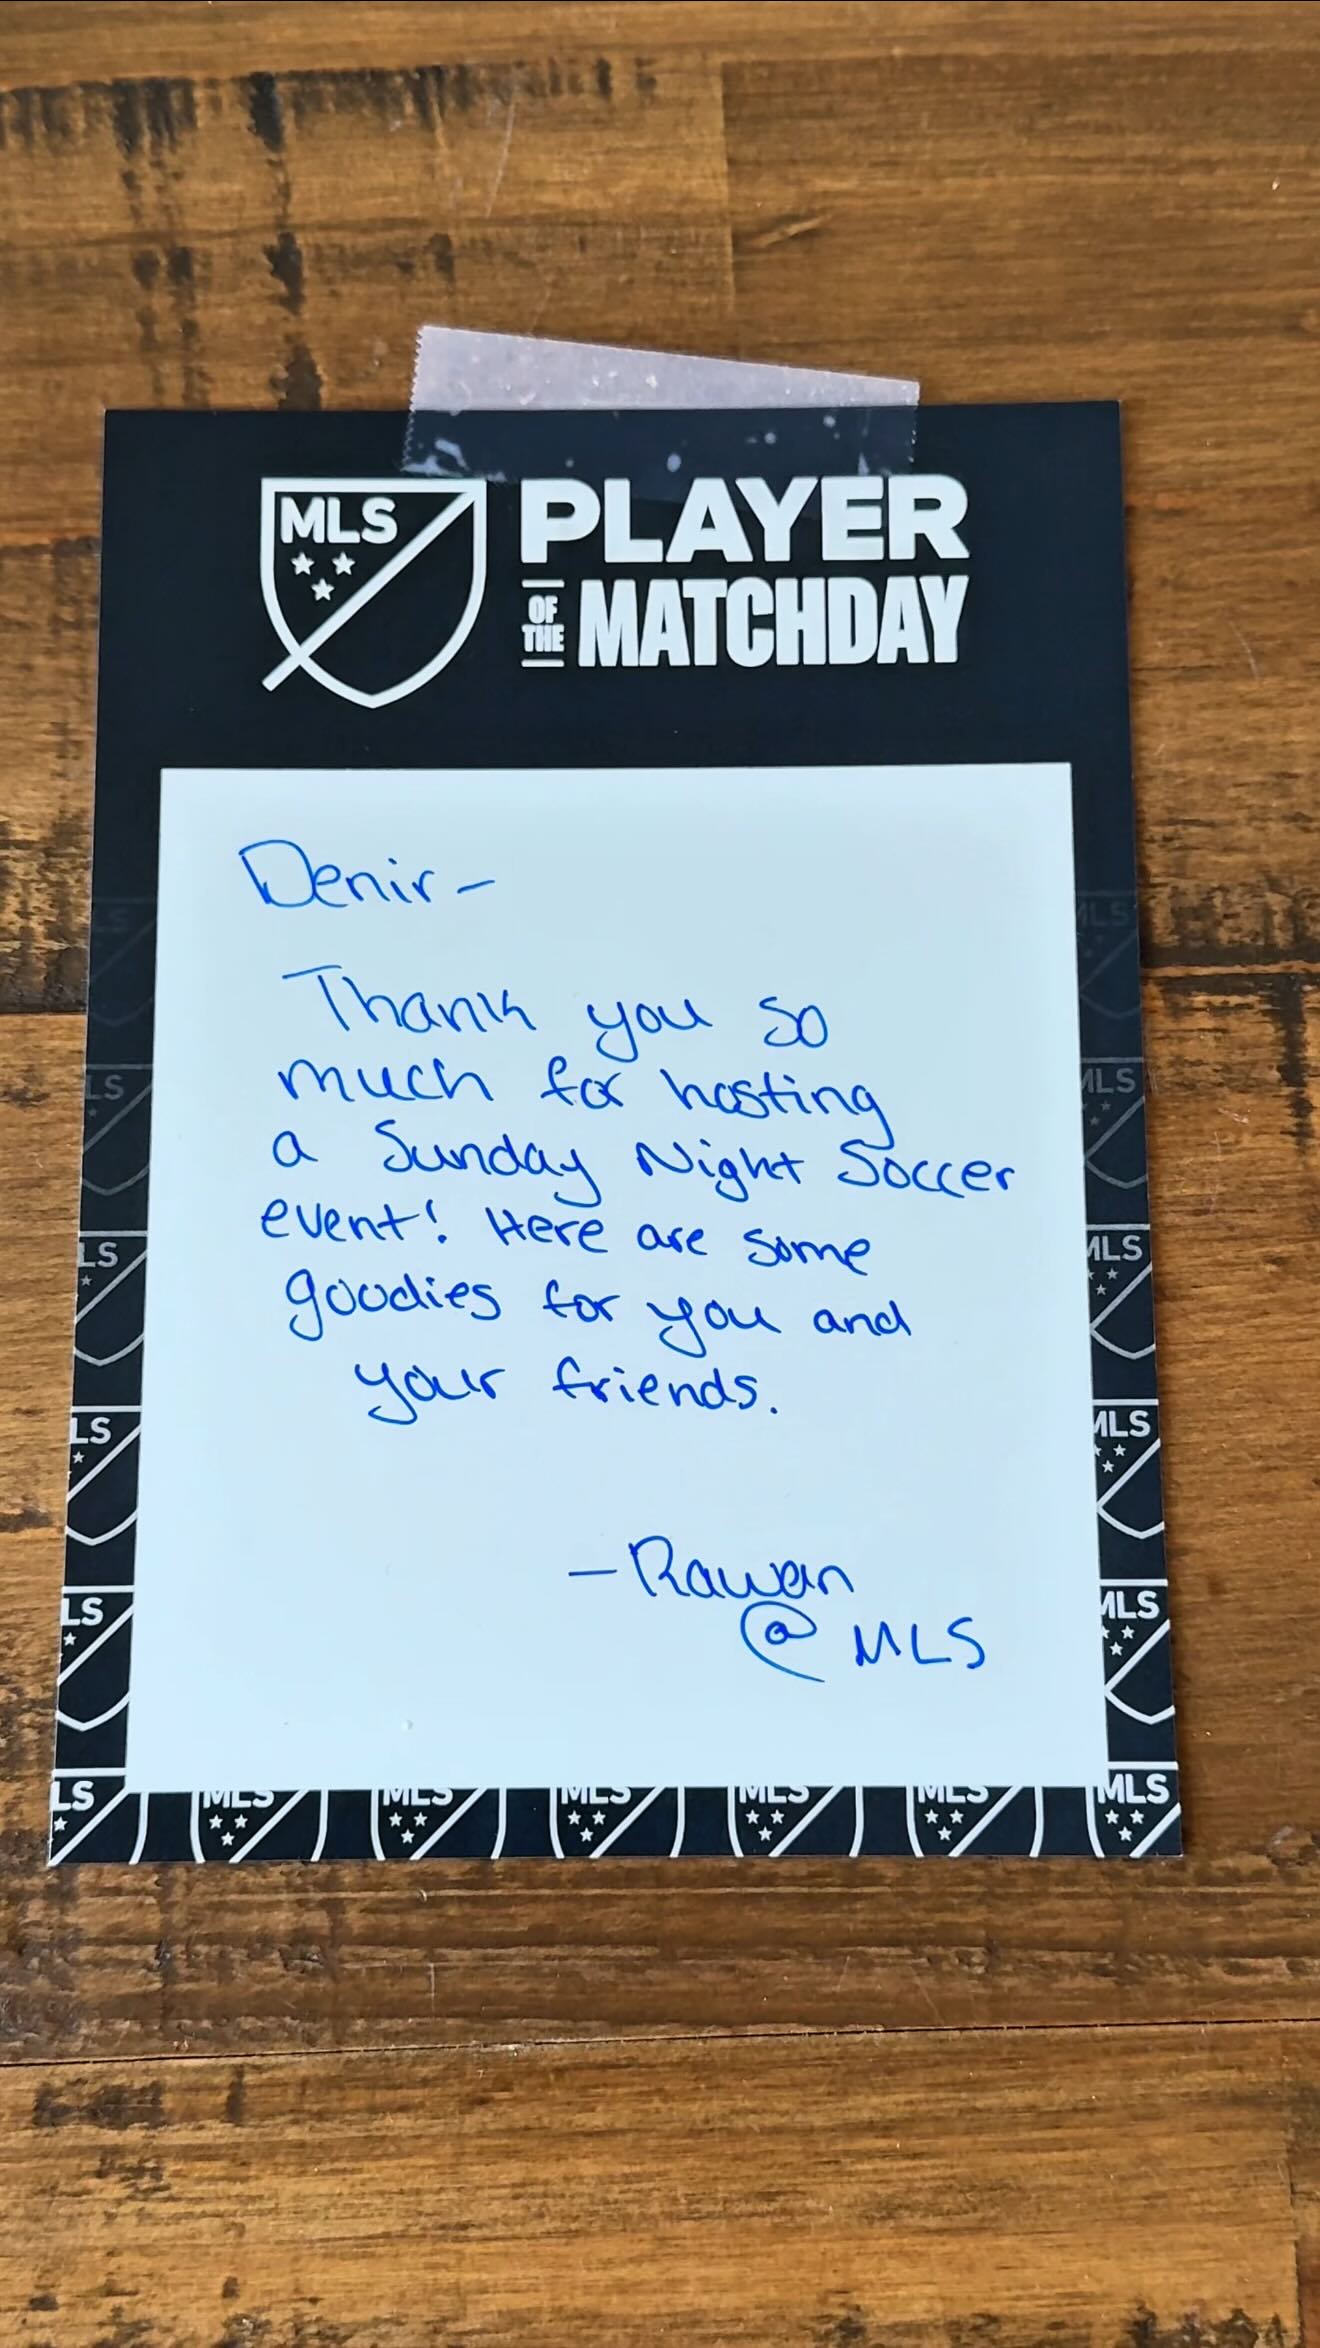 MLS
PLAYER
OF THE MATCHDAY
Denir -
Thank you so
much for hosting
a Sunday Night Soccer
event! Here are some
goodies for you and
your friends.
- Rawan
@ MLS
LS
MLS
LS
MLS
LS
MLS
LS
MLS
LS
MLS
LS MLS MLS MLS MLS MLS MLS